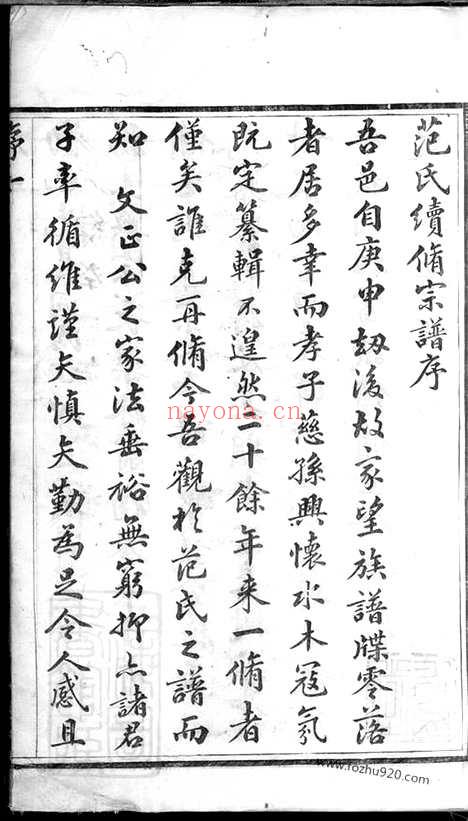 范氏續脩宗譜序
吾邑自庚申刼後故家望族譜牒零落
者居多幸而孝子慈孫興懷水木寇氛
既定纂輯不遑然二十餘年來一脩者
僅矣誰克再脩今吾觀於范氏之譜而
知 文正公之家法垂裕無窮抑亦諸君
子率循維謹矢慎矢勤為足令人感且
序一
nayona.cn
www.fozhu920.com